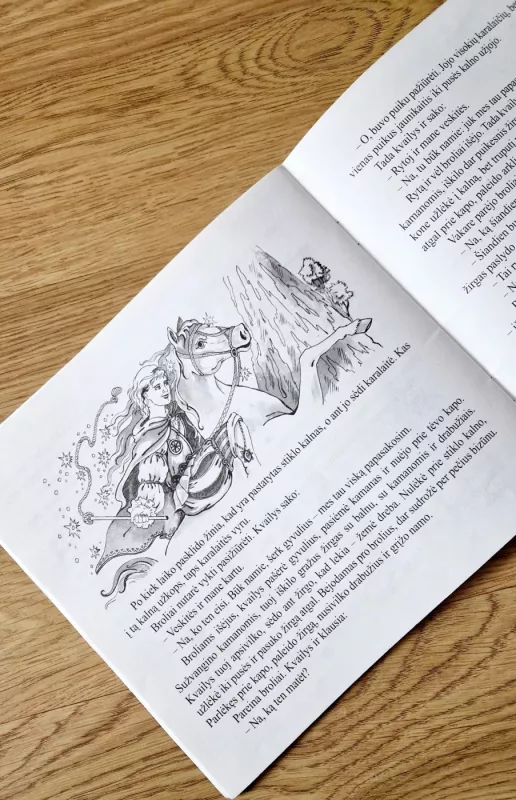 Po kiek laiko pasklido žinia, kad yra pastatytas stiklo kalnas, o ant jo sėdi karalaitė. Kas
į tą kalną užkops, taps karalaitės vyru.
Broliai nutarė vykti pasižiūrėti. Kvailys sako:
– Veskitės ir mane kartu.
– Na, ko ten eisi. Būk namie, šerk gyvulius – mes tau viską papasakosim.
Broliams išėjus, kvailys pašėrė gyvulius, pasiėmė kamanas ir nuėjo prie tėvo kapo.
Sužvangino kamanomis, tuoj iškilo gražus žirgas su balnu, su kamanomis ir drabužiais.
Kvailys tuoj apsivilko, sėdo ant žirgo, kad lekia – žemė dreba. Nulėkė prie stiklo kalno,
užlėkė iki pusės ir pasuko žirgą atgal. Bejodamas pro brolius, dar sudrožė per pečius bizūnu.
Parlėkęs prie kapo, paleido žirgą, nusivilko drabužius ir grįžo namo.
Pareina broliai. Kvailys ir klausia:
– Na, ką ten matėt?
– O, buvo puiku pažiūrėti. Jojo visokių karalaičių, be
vienas puikus jaunikaitis iki pusės kalno užjojo.
Tada kvailys ir sako:
– Rytoj ir mane veskitės.
– Na, tu būk namie: juk mes tau papa
Rytą ir vėl broliai išėjo. Tada kvail
kamanomis, iškilo dar puikesnis žir
kone užlėkė į kalną, bet truputį
atgal prie kapo, paleido arkl
Vakare parėjo brolia
– Na, ką šiandien
– Šiandien bu
žirgas paslydo
– Tai p
– N